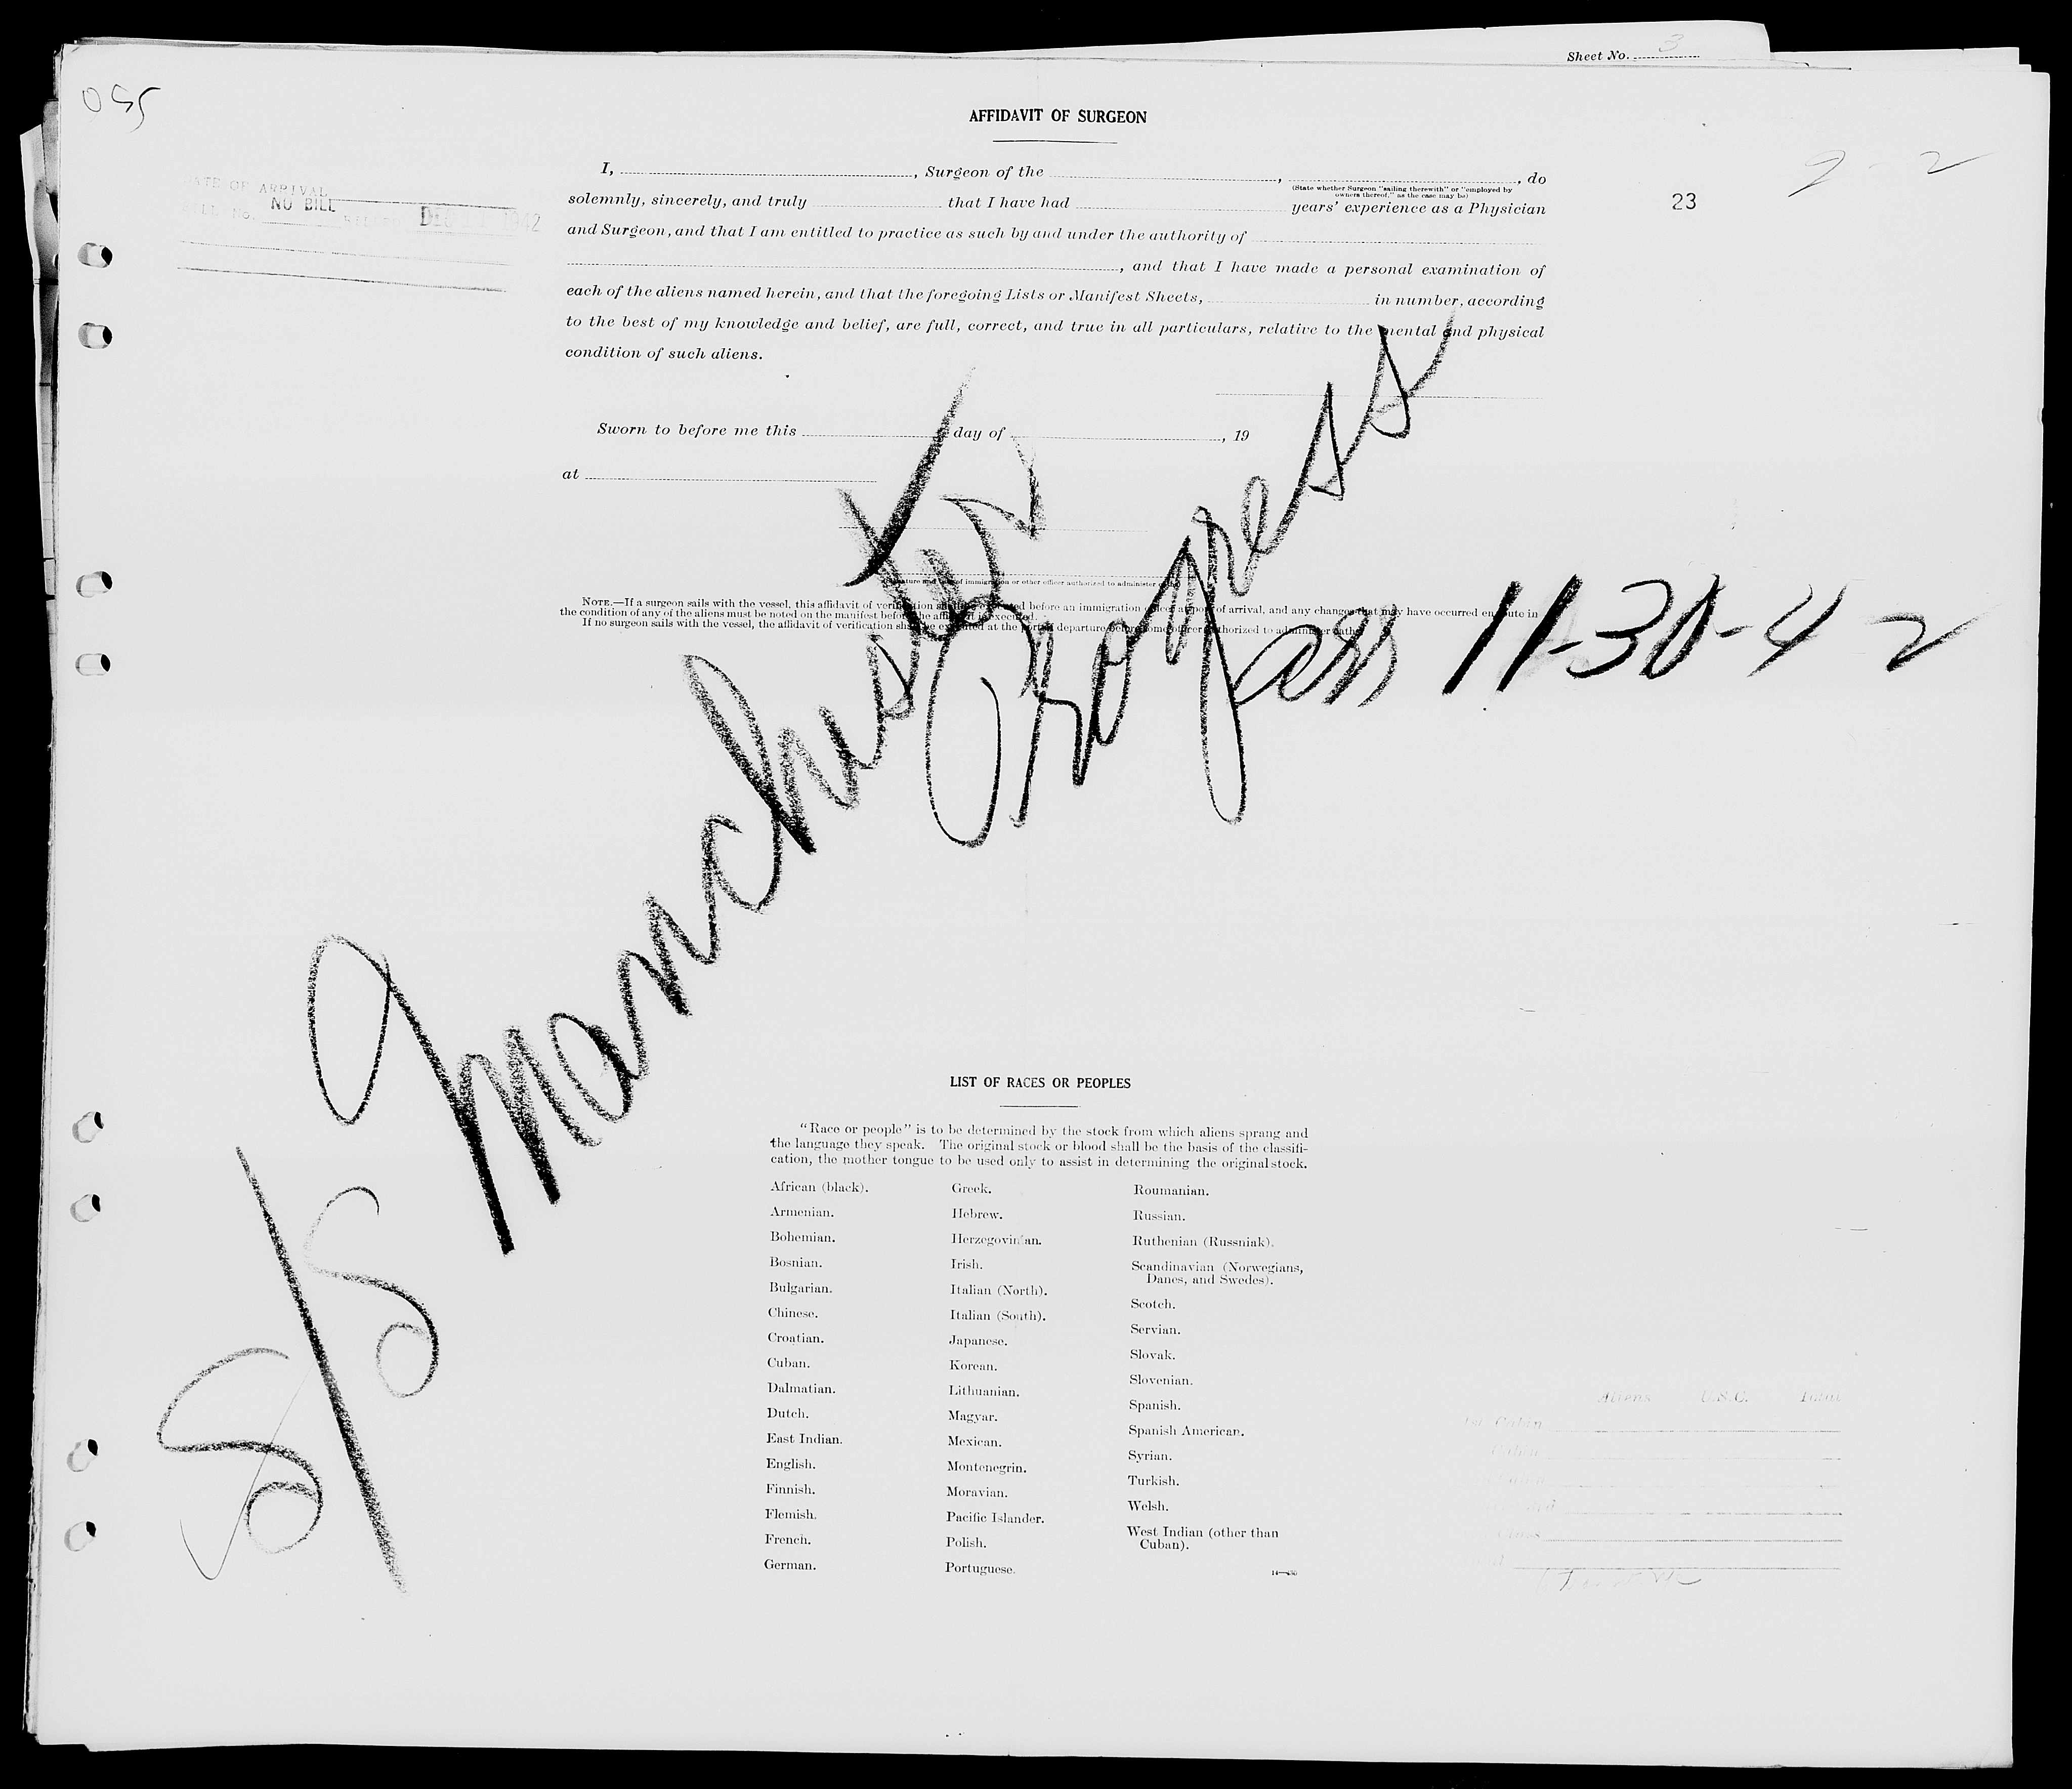 Sheet No. 3
AFFIDAVIT OF SURGEON
I, , Surgeon of the , , do
(State whether Surgeon "sailing therewith" or "employed by
owners thereof," as the case may be)
solemnly, sincerely, and truly that I have had years' experience as a Physician
23
and Surgeon, and that I am entitled to practice as such by and under the authority of
, and that I have made a personal examination of
each of the aliens named herein, and that the foregoing Lists or Manifest Sheets, in number, according
to the best of my knowledge and belief, are full, correct, and true in all particulars, relative to the mental and physical
condition of such aliens.
DATE OF ARRIVAL
NO BILL
DEC 1942
Sworn to before me this day of , 19
at
of immigration or other officer authorized to administer
NOTE.—If a surgeon sails with the vessel, this affidavit of verification shall be executed before an immigration officer at port of arrival, and any changes that may have occurred en route in
the condition of any of the aliens must be noted on the manifest before the affidavit is executed.
If no surgeon sails with the vessel, the affidavit of verification shall be executed at the port of departure before some officer authorized to administer oaths.
S/S Manchester
Progress
11-30-42
LIST OF RACES OR PEOPLES
"Race or people" is to be determined by the stock from which aliens sprang and
the language they speak. The original stock or blood shall be the basis of the classifi-
cation, the mother tongue to be used only to assist in determining the original stock.
African (black).
Armenian.
Bohemian.
Bosnian.
Bulgarian.
Chinese.
Croatian.
Cuban.
Dalmatian.
Dutch.
East Indian.
English.
Finnish.
Flemish.
French.
German.
Greek.
Hebrew.
Herzegovinian.
Irish.
Italian (North).
Italian (South).
Japanese.
Korean.
Lithuanian.
Magyar.
Mexican.
Montenegrin.
Moravian.
Pacific Islander.
Polish.
Portuguese.
Roumanian.
Russian.
Ruthenian (Russniak).
Scandinavian (Norwegians,
Danes, and Swedes).
Scotch.
Servian.
Slovak.
Slovenian.
Spanish.
Spanish American.
Syrian.
Turkish.
Welsh.
West Indian (other than
Cuban).
Aliens U.S.C. Total
1st Cabin